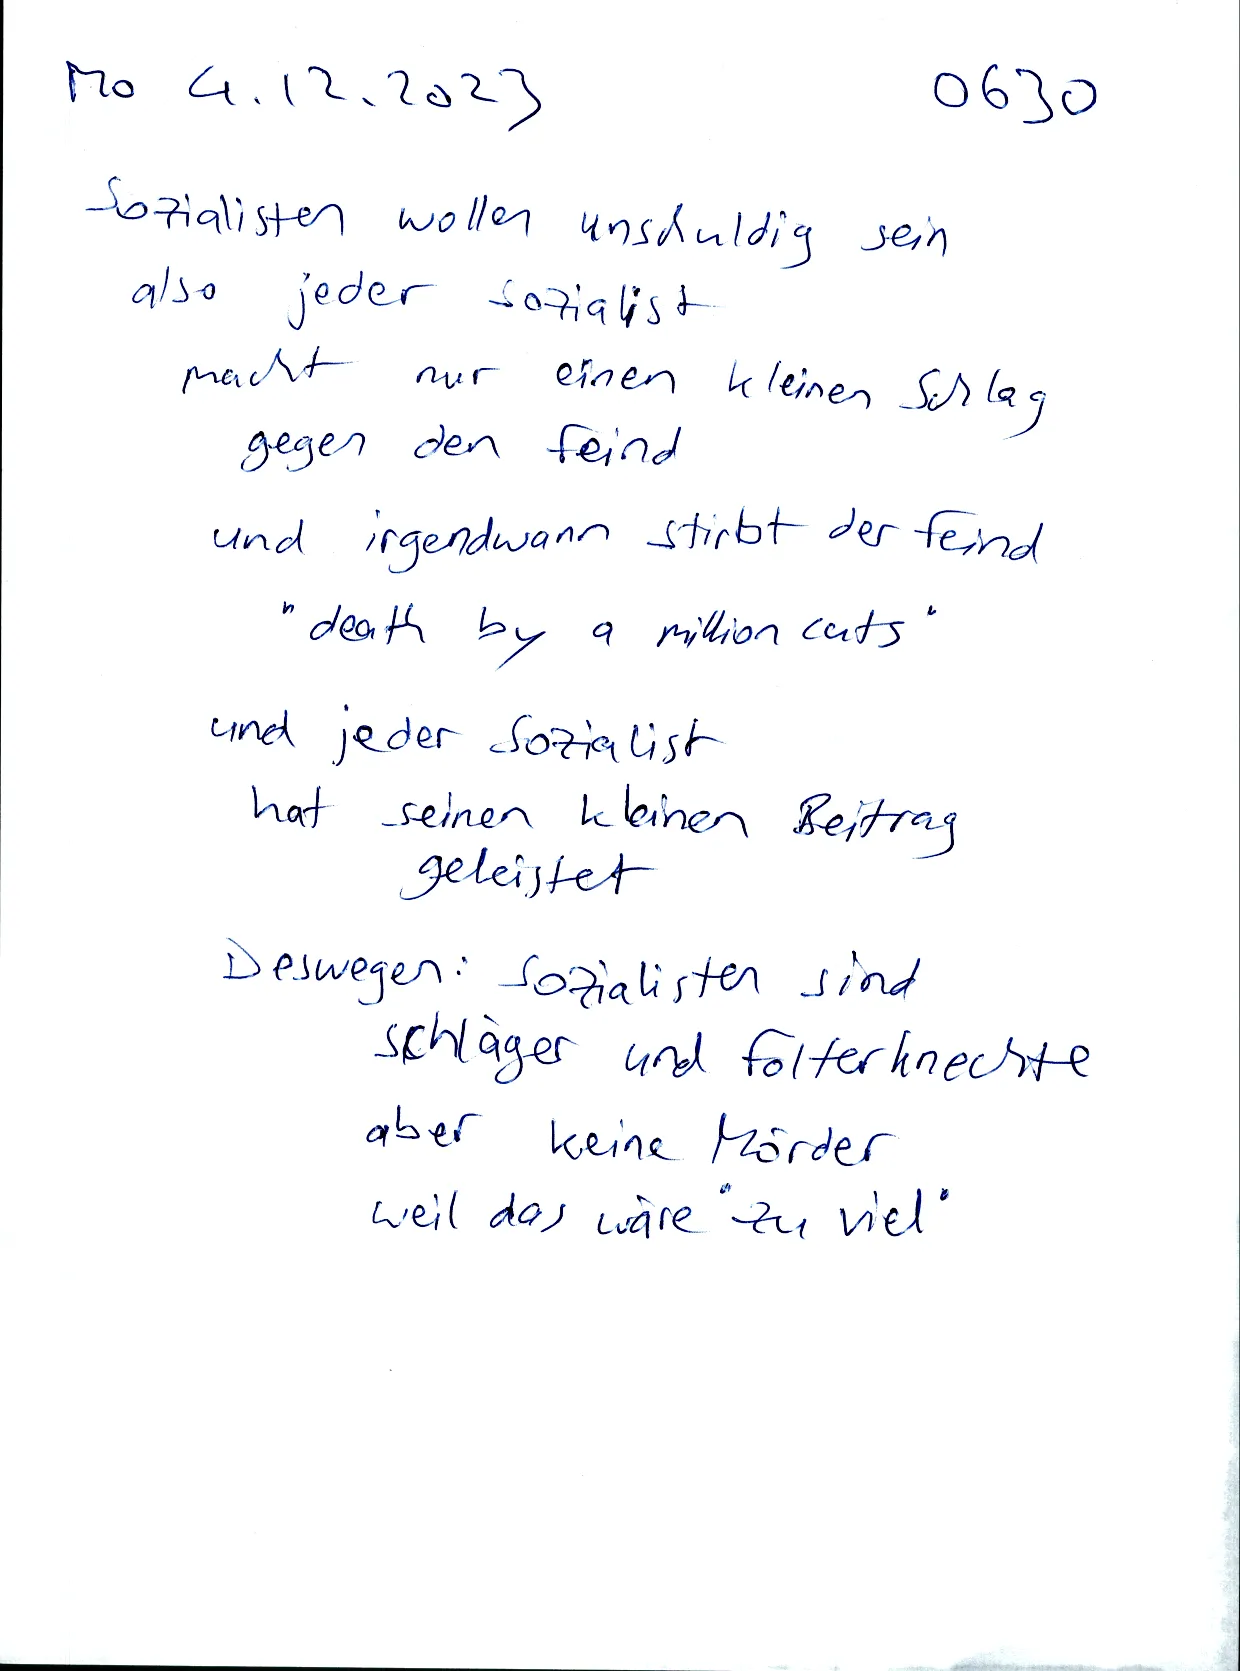 Mo 4.12.2023 0630
Sozialisten wollen unschuldig sein
also jeder sozialist
macht nur einen kleinen Schlag
gegen den Feind
und irgendwann stirbt der Feind
"death by a million cuts"
und jeder Sozialist
hat seinen kleinen Beitrag
geleistet
Deswegen: Sozialisten sind
schläger und Folterknechte
aber keine Mörder
weil das wäre "zu viel"